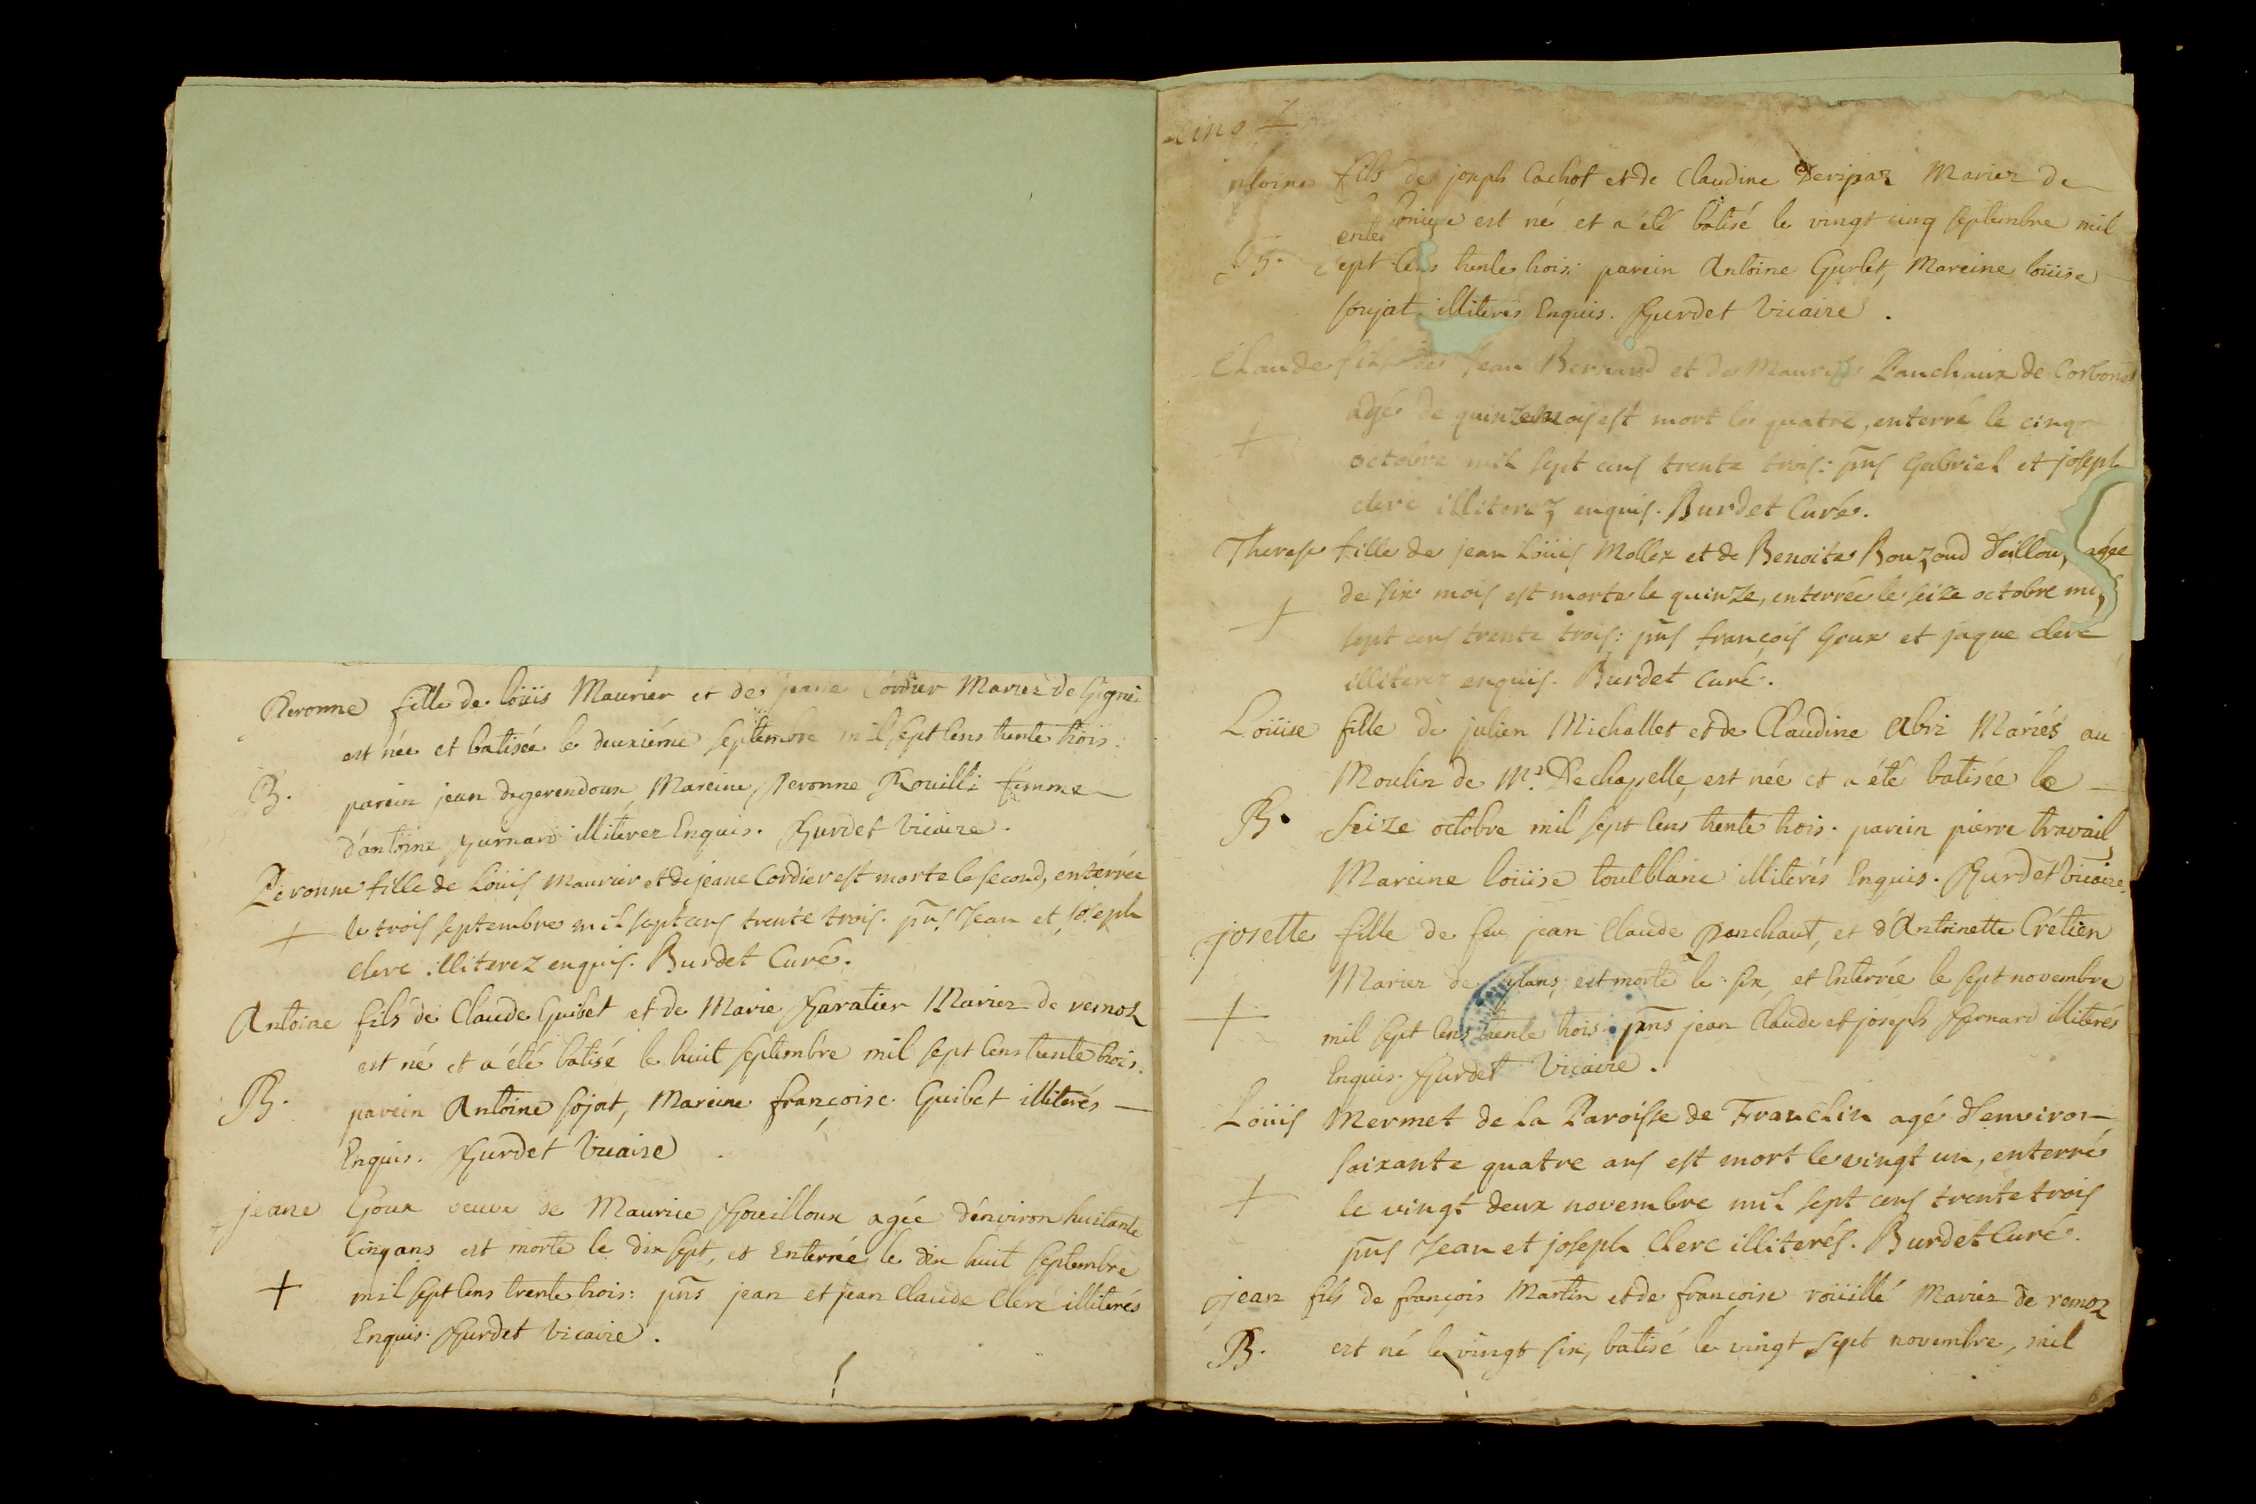 Peronne fille de loüis Maurier et de jeane Cordier Mariez de Gigni
est née et batisée le deuxiéme septembre mil sept cens trente trois.
B. parein jean degerendoux, Mareine, Peronne Rouilli femme
d'antoine Burnard illiterez Enquis. Burdet Vicaire.
Peronne fille de Loüis Maurier et de jeane Cordier est morte le second, enterrée
+ le trois septembre mil sept cens trente trois. pñs Jean et Joseph
clerc illiterez enquis. Burdet Curé.
Antoine fils de Claude Guibet et de Marie Baratier Mariez de remoz
est né et a été batisé le huit septembre mil sept cens trente trois.
B. parein Antoine sojat, Mareine françoise Guibet illiterés
Enquis. Burdet Vicaire
jeane Goux veuve de Maurice Bouilloux agée d'environ huitante
Cinq ans est morte le dix sept, et Enterrée le dix huit septembre
+ mil sept cens trente trois: pñs jean et jean Claude Clerc illiterés
Enquis. Burdet Vicaire.
fils de joseph Cachot et de Claudine Mariez de
est né et a été batisé le vingt cinq septembre mil
B. sept cens trente trois: parein Antoine Gurlet, Mareine loüise
sonjat illiterés Enquis. Burdet Vicaire.
Claude fils de Jean Bernard et de Panchaux de Corbonod
agé de quinze mois est mort le quatre, enterré le cinq
+ octobre mil sept cens trente trois: pñs Gabriel et joseph
clerc illiterez enquis. Burdet Curé.
Therese fille de jean Loüis Mollex et de Benoite Bouzond d'eillou, agée
de six mois est morte le quinze, enterrée le seize octobre mil
+ sept cens trente trois: pñs françois Goux et jaque clerc
illiterez enquis. Burdet Curé.
Loüise fille de julien Michallet et de Claudine Abri Mariés au
Moulin de Mr. Dechapelle, est née et a été batisée le
B. Seize octobre mil sept cens trente trois. parein pierre travail,
Mareine loüise toulblanc illiterés Enquis. Burdet Vicaire.
josette fille de feu jean Claude Panchaut, et d'Antoinette Crétien
Mariez de sylans, est morte le six, et Enterrée le sept novembre
+ mil sept cens trente trois. pñs jean Claude et joseph Bernard illiterés
Enquis. Burdet Vicaire.
Loüis Mermet de la Paroisse de Franclin agé d'environ
soixante quatre ans est mort le vingt un, enterré
+ le vingt deux novembre mil sept cens trente trois
pñs Jean et joseph Clerc illiterés. Burdet Curé.
jean fils de françois Martin et de françoise roüillé Mariez de remoz
B. est né le vingt six, batisé le vingt sept novembre, mil